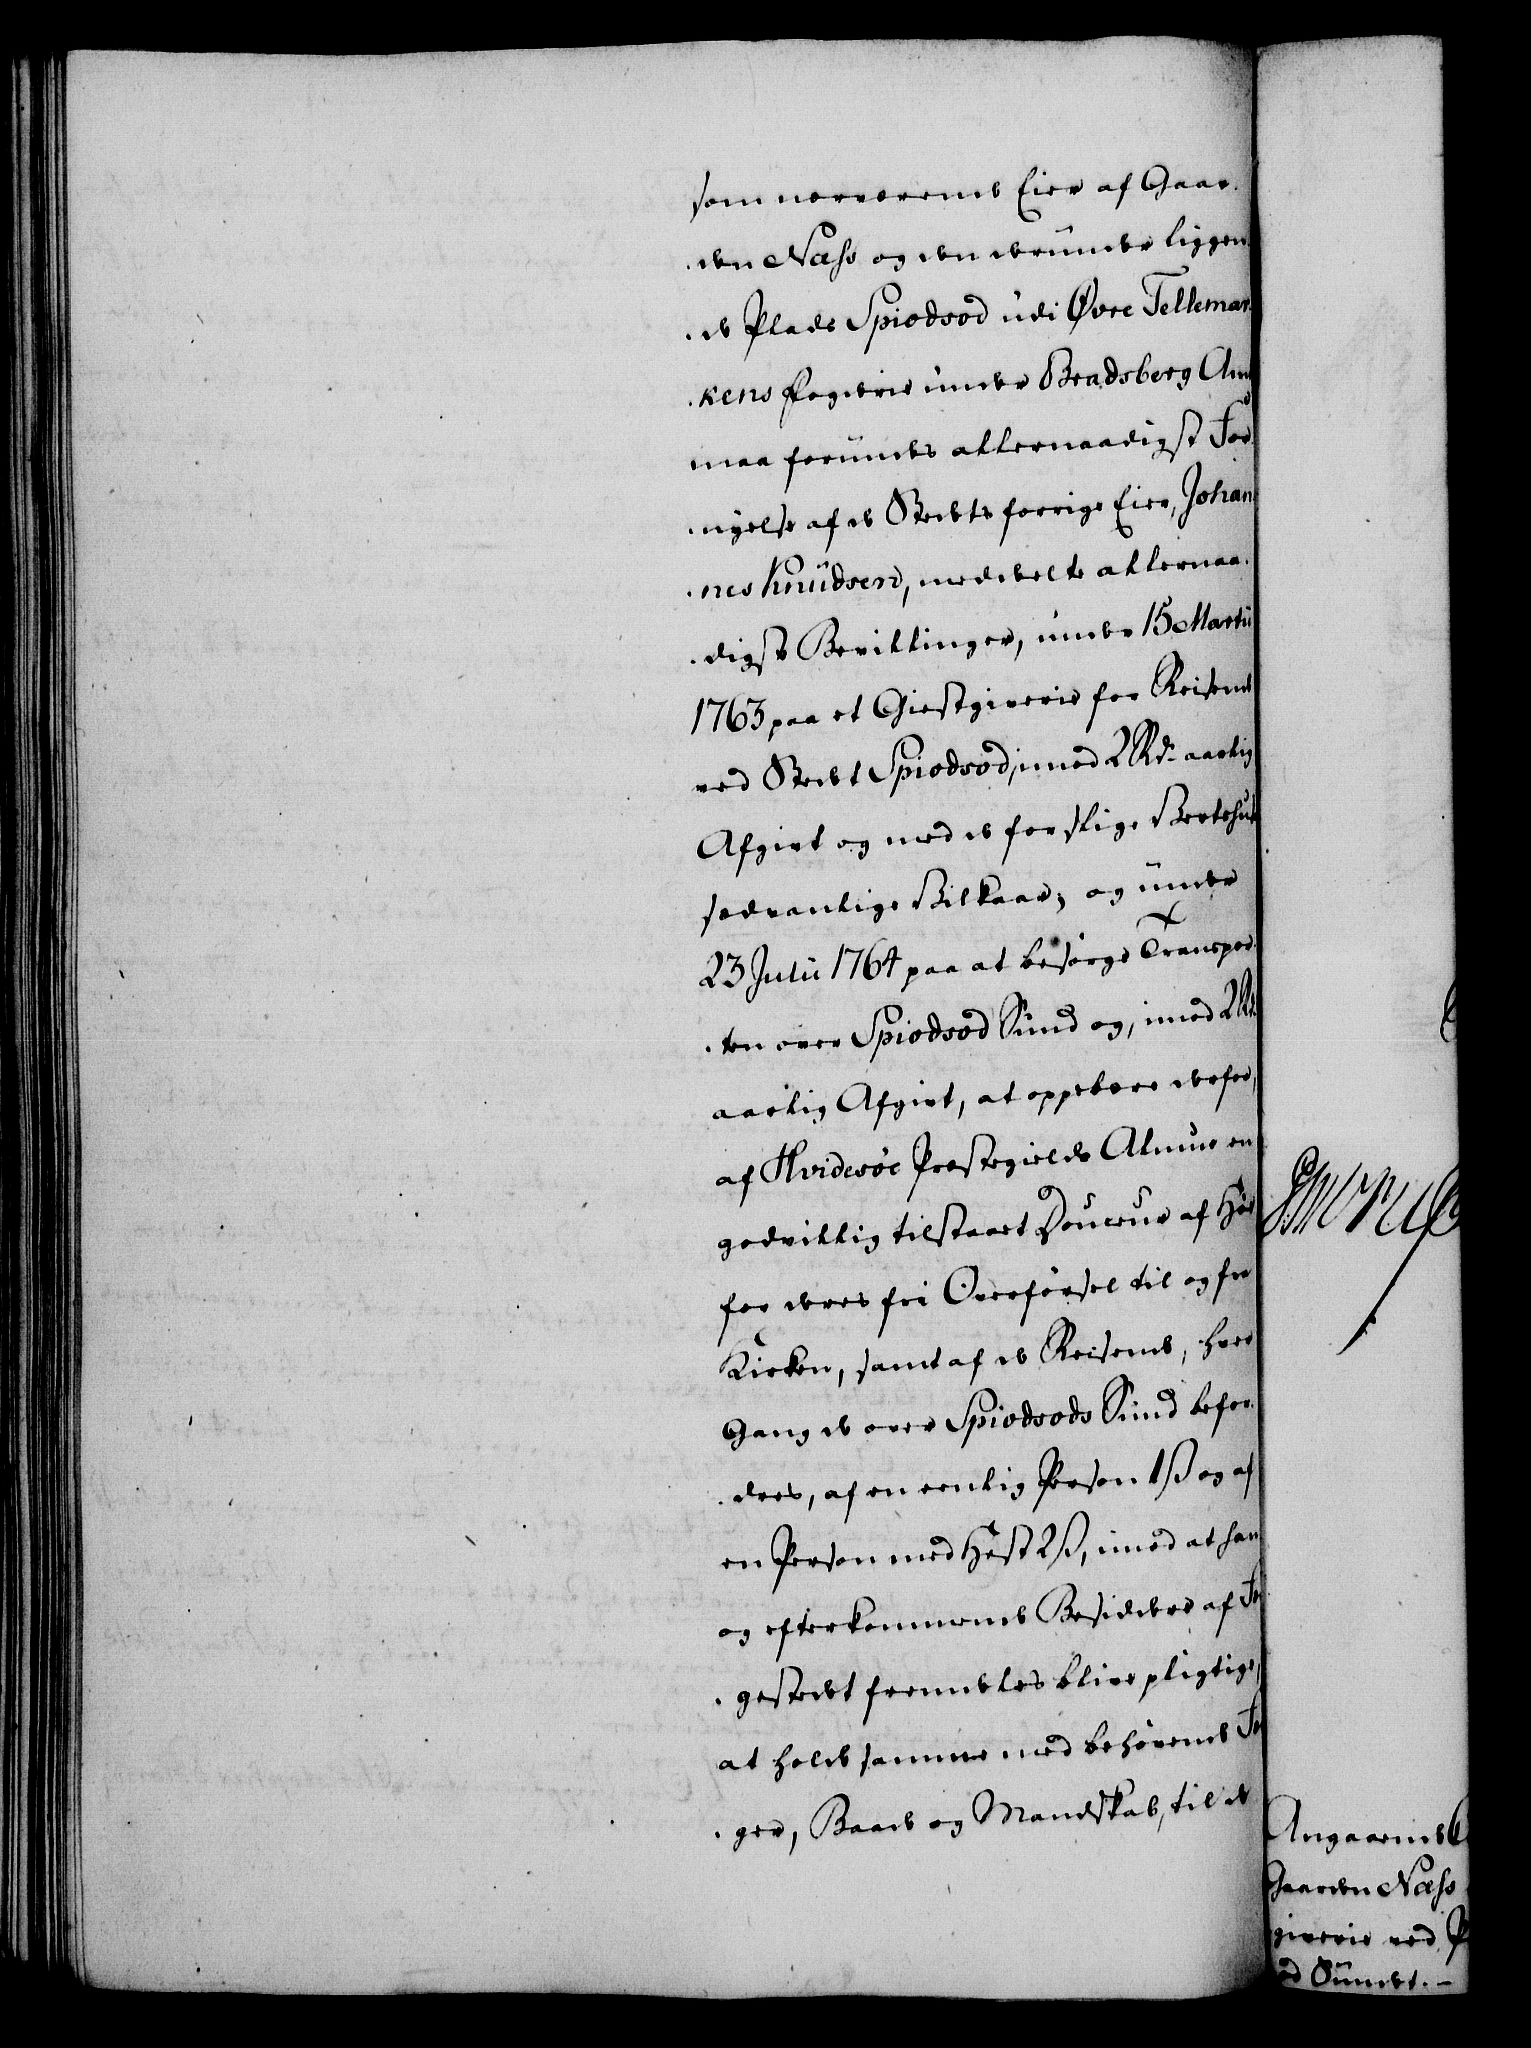 som nærværende Eier af Gaar-
den Næss og den derunder liggen-
de Plads Spiodsod udi Øvre Tellemar-
kens Fogderie under Bradsberg Amt
maa forundes allernaadigst For-
nyelse af de Stedets forrige Eier, Johan-
nes Knudsen, meddeelte allernaa-
digste Bevillinger, under 15 Martii
1763 paa et Giestgiverie for Reisende
ved Stedet Spiodsod, imod 2 Rd. aarlig
Afgivt og med de for slige Bertshuse
sædvanlige Vilkaar; og under
23 Julii 1764 paa at besørge Transpor-
ten over Spiodsod Sund og, imod 2 Rd.
aarlig Afgivt, at oppebære derfor,
af Hvidesøe Præstegields Almue en
godvillig tilstaaet Douceur af Høe
for deres fri Overførsel til og fra
Kirken, samt af de Reisende, hver
Gang de over Spiodsods Sund befor-
dres, af en eenlig Person 1 ß og af
en Person med Hest 2 ß, imod at han
og efterkommende Besiddere af Fær-
gestedet fremdeles blive pligtige,
at holde samme med behøvende Fær-
ger, Baade og Mandskab, til de
Angaaende
Gaarden Næss
giverie ved
Sundet. -